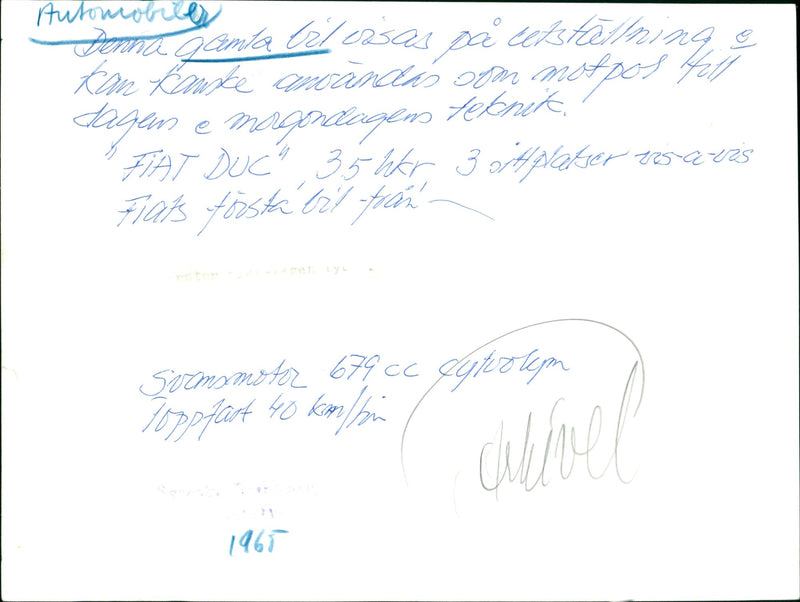 Automobiler
Denna gamla bil visas på utställning e
kan kanske användas som motpol till
dagens e morgondagens teknik.
"FIAT DUC", 3.5 hkr, 3 sittplatser vis-a-vis
Fiats första bil från
Svansmotor 679 cc cylvolym
Toppfart 40 km/tim
Arkivet
1965